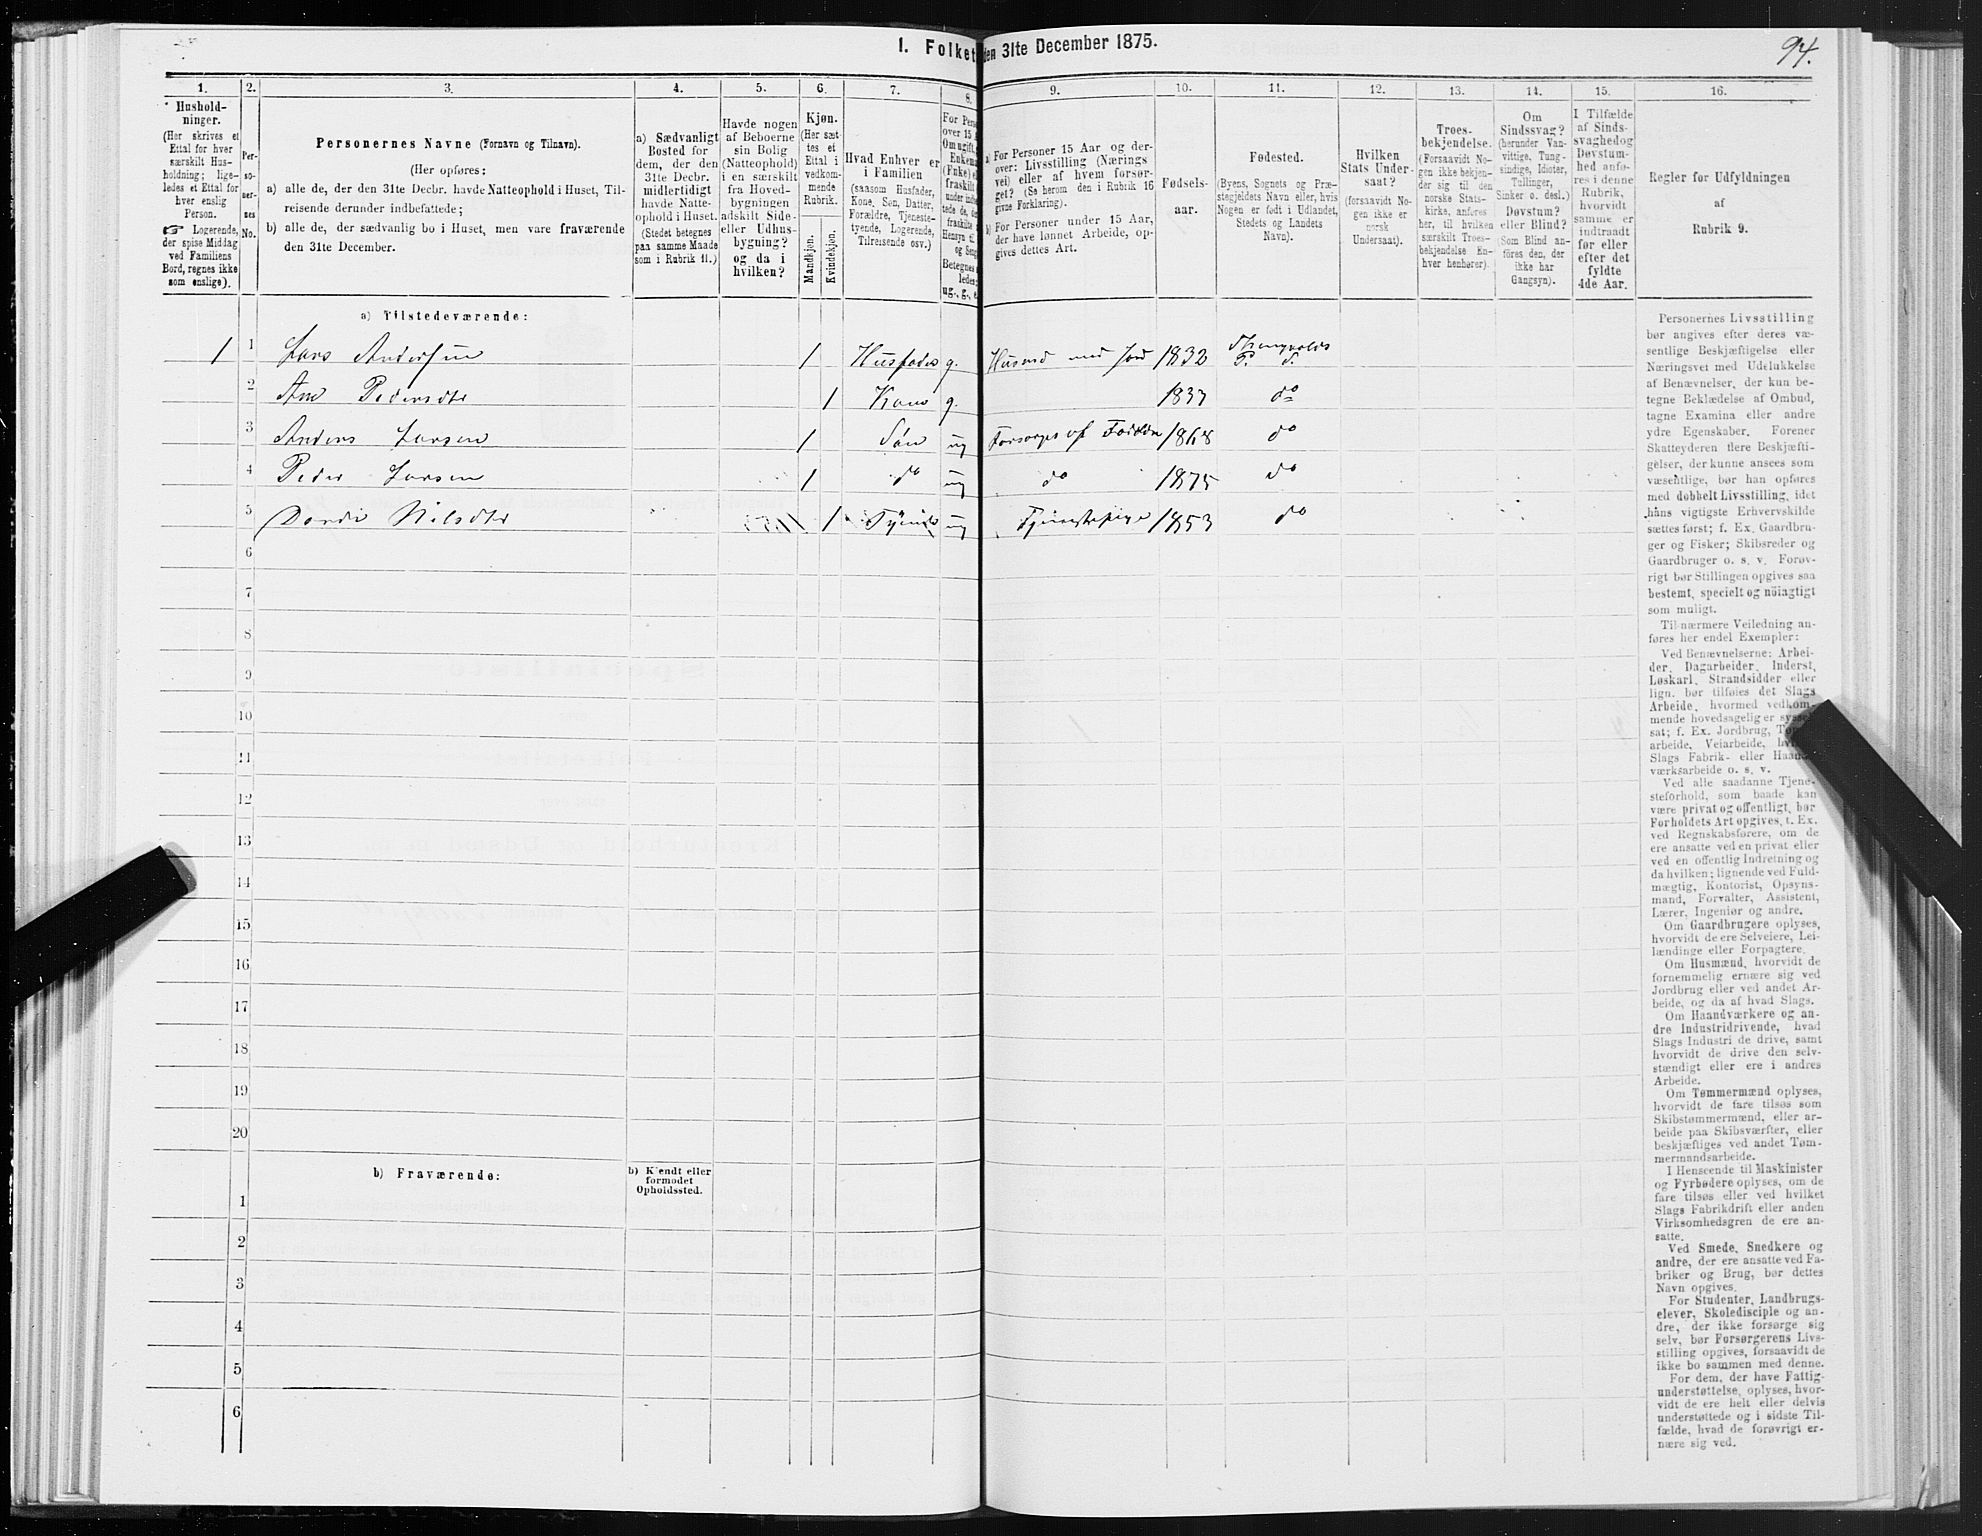 94.
I. Folket
den 31te December 1875.
1.
2.
3.
4.
5.
6.
7.
8.
9.
10.
11.
12.
13.
14.
15.
16.
Hushold-
ninger.
(Her skrives et
Ettal for hver
særskilt Hus-
holdning; lige-
ledes et Ettal for
hver enslig
Person.
☞ Logerende,
der spise Middag
ved Familiens
Bord, regnes ikke
som enslige).
Per-
so-
ner-
nes
No.
Personernes Navne (Fornavn og Tilnavn).
(Her opføres:
a) alle de, der den 31te Decbr. havde Natteophold i Huset, Til-
reisende derunder indbefattede;
b) alle de, der sædvanlig bo i Huset, men vare fraværende
den 31te December.
a) Sædvanligt
Bosted for
dem, der den
31te Decbr.
midlertidigt
havde Natte-
ophold i Huset.
(Stedet betegnes
paa samme Maade
som i Rubrik 11.)
Havde nogen
af Beboerne
sin Bolig
(Natteophold)
i en særskilt
fra Hoved-
bygningen
adskilt Side-
eller Udhus-
bygning?
og da i
hvilken?
Kjøn.
(Her sæt-
tes et
Ettal i
vedkom-
mende
Rubrik.
Mandkjøn.
Kvindekjøn.
Hvad Enhver er
i Familien
(saasom Husfader,
Kone, Søn, Datter,
Forældre, Tjeneste-
tyende, Logerende,
Tilreisende osv.)
For Pers
over 15 A
Om ugift,
Enkema
(Enke) e
fraskilt
under indbe
tede de, de
fraskilte
Hensyn til
og Seng
Betegnes s
ledes:
ug., g., e.
a) For Personer 15 Aar og der-
over: Livsstilling (Nærings
vei) eller af hvem forsør-
get? (Se herom den i Rubrik 16
givne Forklaring).
b) For Personer under 15 Aar,
der have lønnet Arbeide, op-
gives dettes Art.
Fødsels-
aar.
Fødested.
(Byens, Sognets og Præ-
stegjeldets Navn eller, hvis
Nogen er født i Udlandet,
Stedets og Landets
Navn).
Hvilken
Stats Under-
saat?
(forsaavidt No-
gen ikke er
norsk
Undersaat).
Troes-
bekjendelse.
(Forsaavidt No-
gen ikke bekjen-
der sig til den
norske Stats-
kirke, anføres
her, til hvilken
særskilt Troes-
bekjendelse En-
hver henhører).
Om
Sindssvag?
(herunder Van-
vittige, Tung-
sindige, Idioter,
Tullinger,
Sinker o. desl.)
Døvstum?
eller Blind?
(Som Blind an-
føres den, der
ikke har
Gangsyn).
I Tilfælde
af Sinds-
svaghed og
Døvstum-
hed anfø-
res i denne
Rubrik,
hvorvidt
samme er
indtraadt
før eller
efter det
fyldte
4de Aar.
Regler for Udfyldningen
af
Rubrik 9.
a) Tilstedeværende:
1 1 Lars Andersen 1 Husfader g. Husmd med Jord 1832
P. d.
2 Ane Pedersdtr 1 Kone g. 1837 do
3 Anders Larsen 1 Søn ug Forsørges af Faderen 1868 do
4 Peder Larsen 1 do ug do 1875 do
5 Nilsdtr 1 ug Tjenestepige 1853 do
6
7
8
9
10
11
12
13
14
15
16
17
18
19
20
b) Fraværende:
b) Kjendt eller
formodet
Opholdssted.
1
2
3
4
5
6
Personernes Livsstilling
bør angives efter deres væ-
sentlige Beskjæftigelse eller
Næringsvei med Udelukkelse
af Benævnelser, der kun be-
tegne Beklædelse af Ombud,
tagne Examina eller andre
ydre Egenskaber. Forener
Skatteyderen flere Beskjæfti-
gelser, der kunne ansees som
væsentlige, bør han opføres
med dobbelt Livsstilling, idet
hans vigtigste Erhvervskilde
sættes først; f. Ex. Gaardbru-
ger og Fisker; Skibsreder og
Gaardbruger o. s. v. Forøv-
rigt bør Stillingen opgives saa
bestemt, specielt og nøiagtigt
som muligt.
Til nærmere Veiledning an-
føres her endel Exempler:
Ved Benævnelserne: Arbei-
der, Dagarbeider, Inderst,
Løskarl, Strandsidder eller
lign. bør tilføies det Slags
Arbeide, hvormed vedkom-
mende hovedsagelig er syssel-
sat; f. Ex. Jordbrug, Tøm
arbeide, Veiarbeide, hvi
Slags Fabrik- eller Haand-
værksarbeide o. s. v.
Ved alle saadanne Tjene-
steforhold, som baade kan
være privat og offentligt, bør
Forholdets Art opgives, t. Ex.
ved Regnskabsførere, om de
ere ansatte ved en privat eller
ved en offentlig Indretning og
da hvilken; lignende ved Fuld-
mægtig, Kontorist, Opsyns-
mand, Forvalter, Assistent,
Lærer, Ingeniør og andre.
Om Gaardbrugere oplyses,
hvorvidt de ere Selveiere, Lei-
lændinge eller Forpagtere.
Om Husmænd, hvorvidt de
fornemmelig ernære sig ved
Jordbrug eller ved andet Ar-
beide, og da af hvad Slags.
Om Haandværkere og an-
dre Industridrivende, hvad
Slags Industri de drive, samt
hvorvidt de drive den selv-
stændigt eller ere i andres
Arbeide.
Om Tømmermænd oplyses,
hvorvidt de fare tilsøs som
Skibstømmermænd, eller ar-
beide paa Skibsværfter, eller
beskjæftiges ved andet Tøm-
mermandsarbeide.
I Henseende til Maskinister
og Fyrbødere oplyses, om de
fare tilsøs eller ved hvilket
Slags Fabrikdrift eller anden
Virksomhedsgren de ere an-
satte.
Ved Smede, Snedkere og
andre, der ere ansatte ved Fa-
briker og Brug, bør dettes
Navn opgives.
For Studenter, Landbrugs-
elever, Skoledisciple og an-
dre, der ikke forsørge sig
selv, bør Forsørgerens Livs-
stilling opgives, forsaavidt de
ikke bo sammen med denne.
For dem, der have Fattig-
understøttelse, oplyses, hvor-
vidt de ere helt eller delvis
understøttede og i sidste Til-
fælde, hvad de forøvrigt er-
nære sig ved.